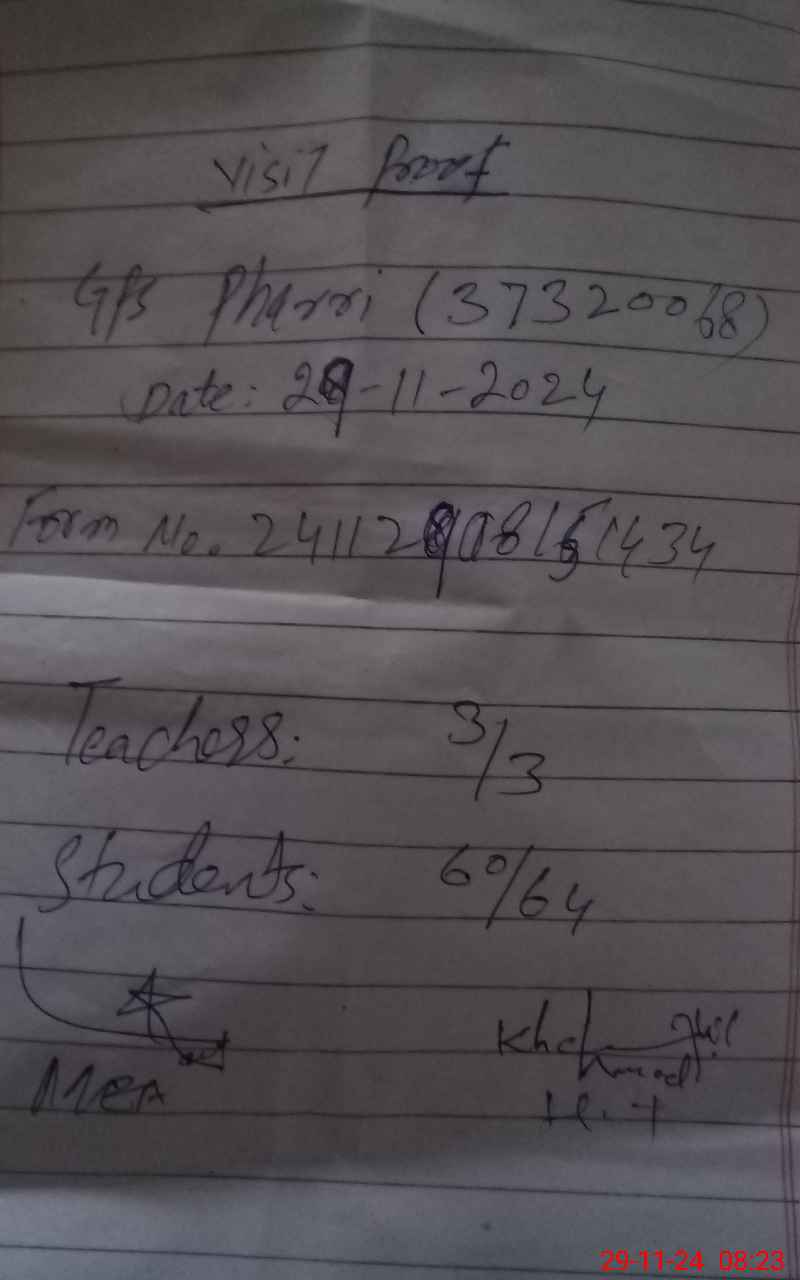 Visit Proof
GPS Pharri (37320068)
Date: 29-11-2024
Form No. 24112908151434
Teachers: 3/3
Students: 60/64
MEA
H.T
29-11-24 08:23